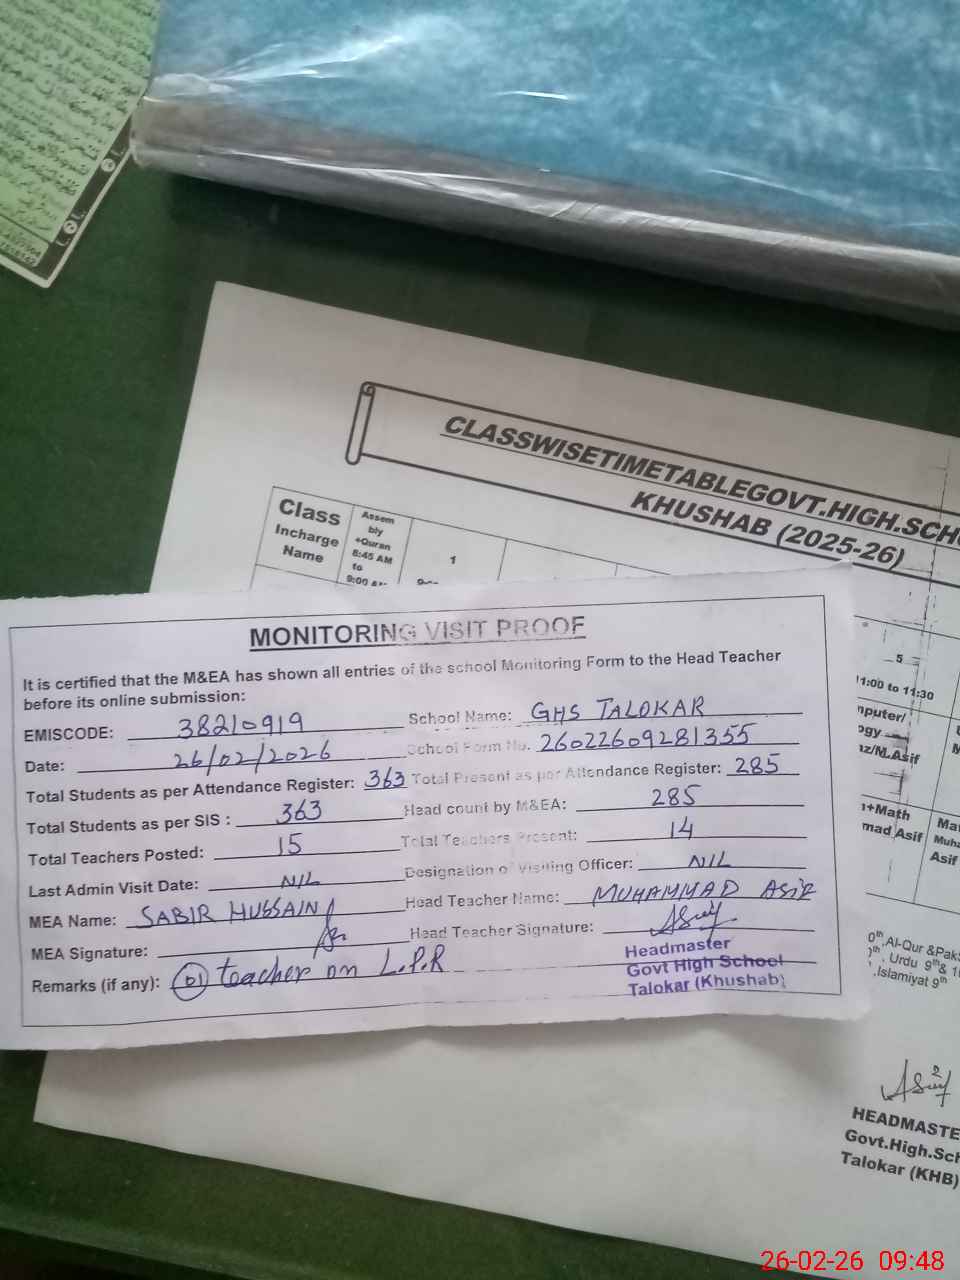 CLASSWISETIMETABLEGOVT.HIGH.SCHO
KHUSHAB (2025-26)
Class
Incharge
Name
Assem
bly
+Quran
8:45 AM
to
9:00 AM
1
5
11:00 to 11:30
mputer/
ogy
az/M.Asif
n+Math
mad Asif
Muha
Asif
MONITORING VISIT PROOF
It is certified that the M&EA has shown all entries of the school Monitoring Form to the Head Teacher
before its online submission:
EMISCODE: 38210919 School Name: GHS TALOKAR
Date: 26/02/2026 School Form No. 26022609281355
Total Students as per Attendance Register: 363 Total Present as per Attendance Register: 285
Total Students as per SIS : 363 Head count by M&EA: 285
Total Teachers Posted: 15 Total Teachers Present: 14
Last Admin Visit Date: NIL Designation of Visiting Officer: NIL
MEA Name: SABIR HUSSAIN Head Teacher Name: MUHAMMAD ASIF
MEA Signature: Head Teacher Signature:
Remarks (if any): 01 teacher on L.P.R
Headmaster
Govt High School
Talokar (Khushab)
0th,Al-Qur &Pak
, Urdu 9th&
.Islamiyat 9th
HEADMASTE
Govt.High.Sch
Talokar (KHB)
26-02-26 09:48